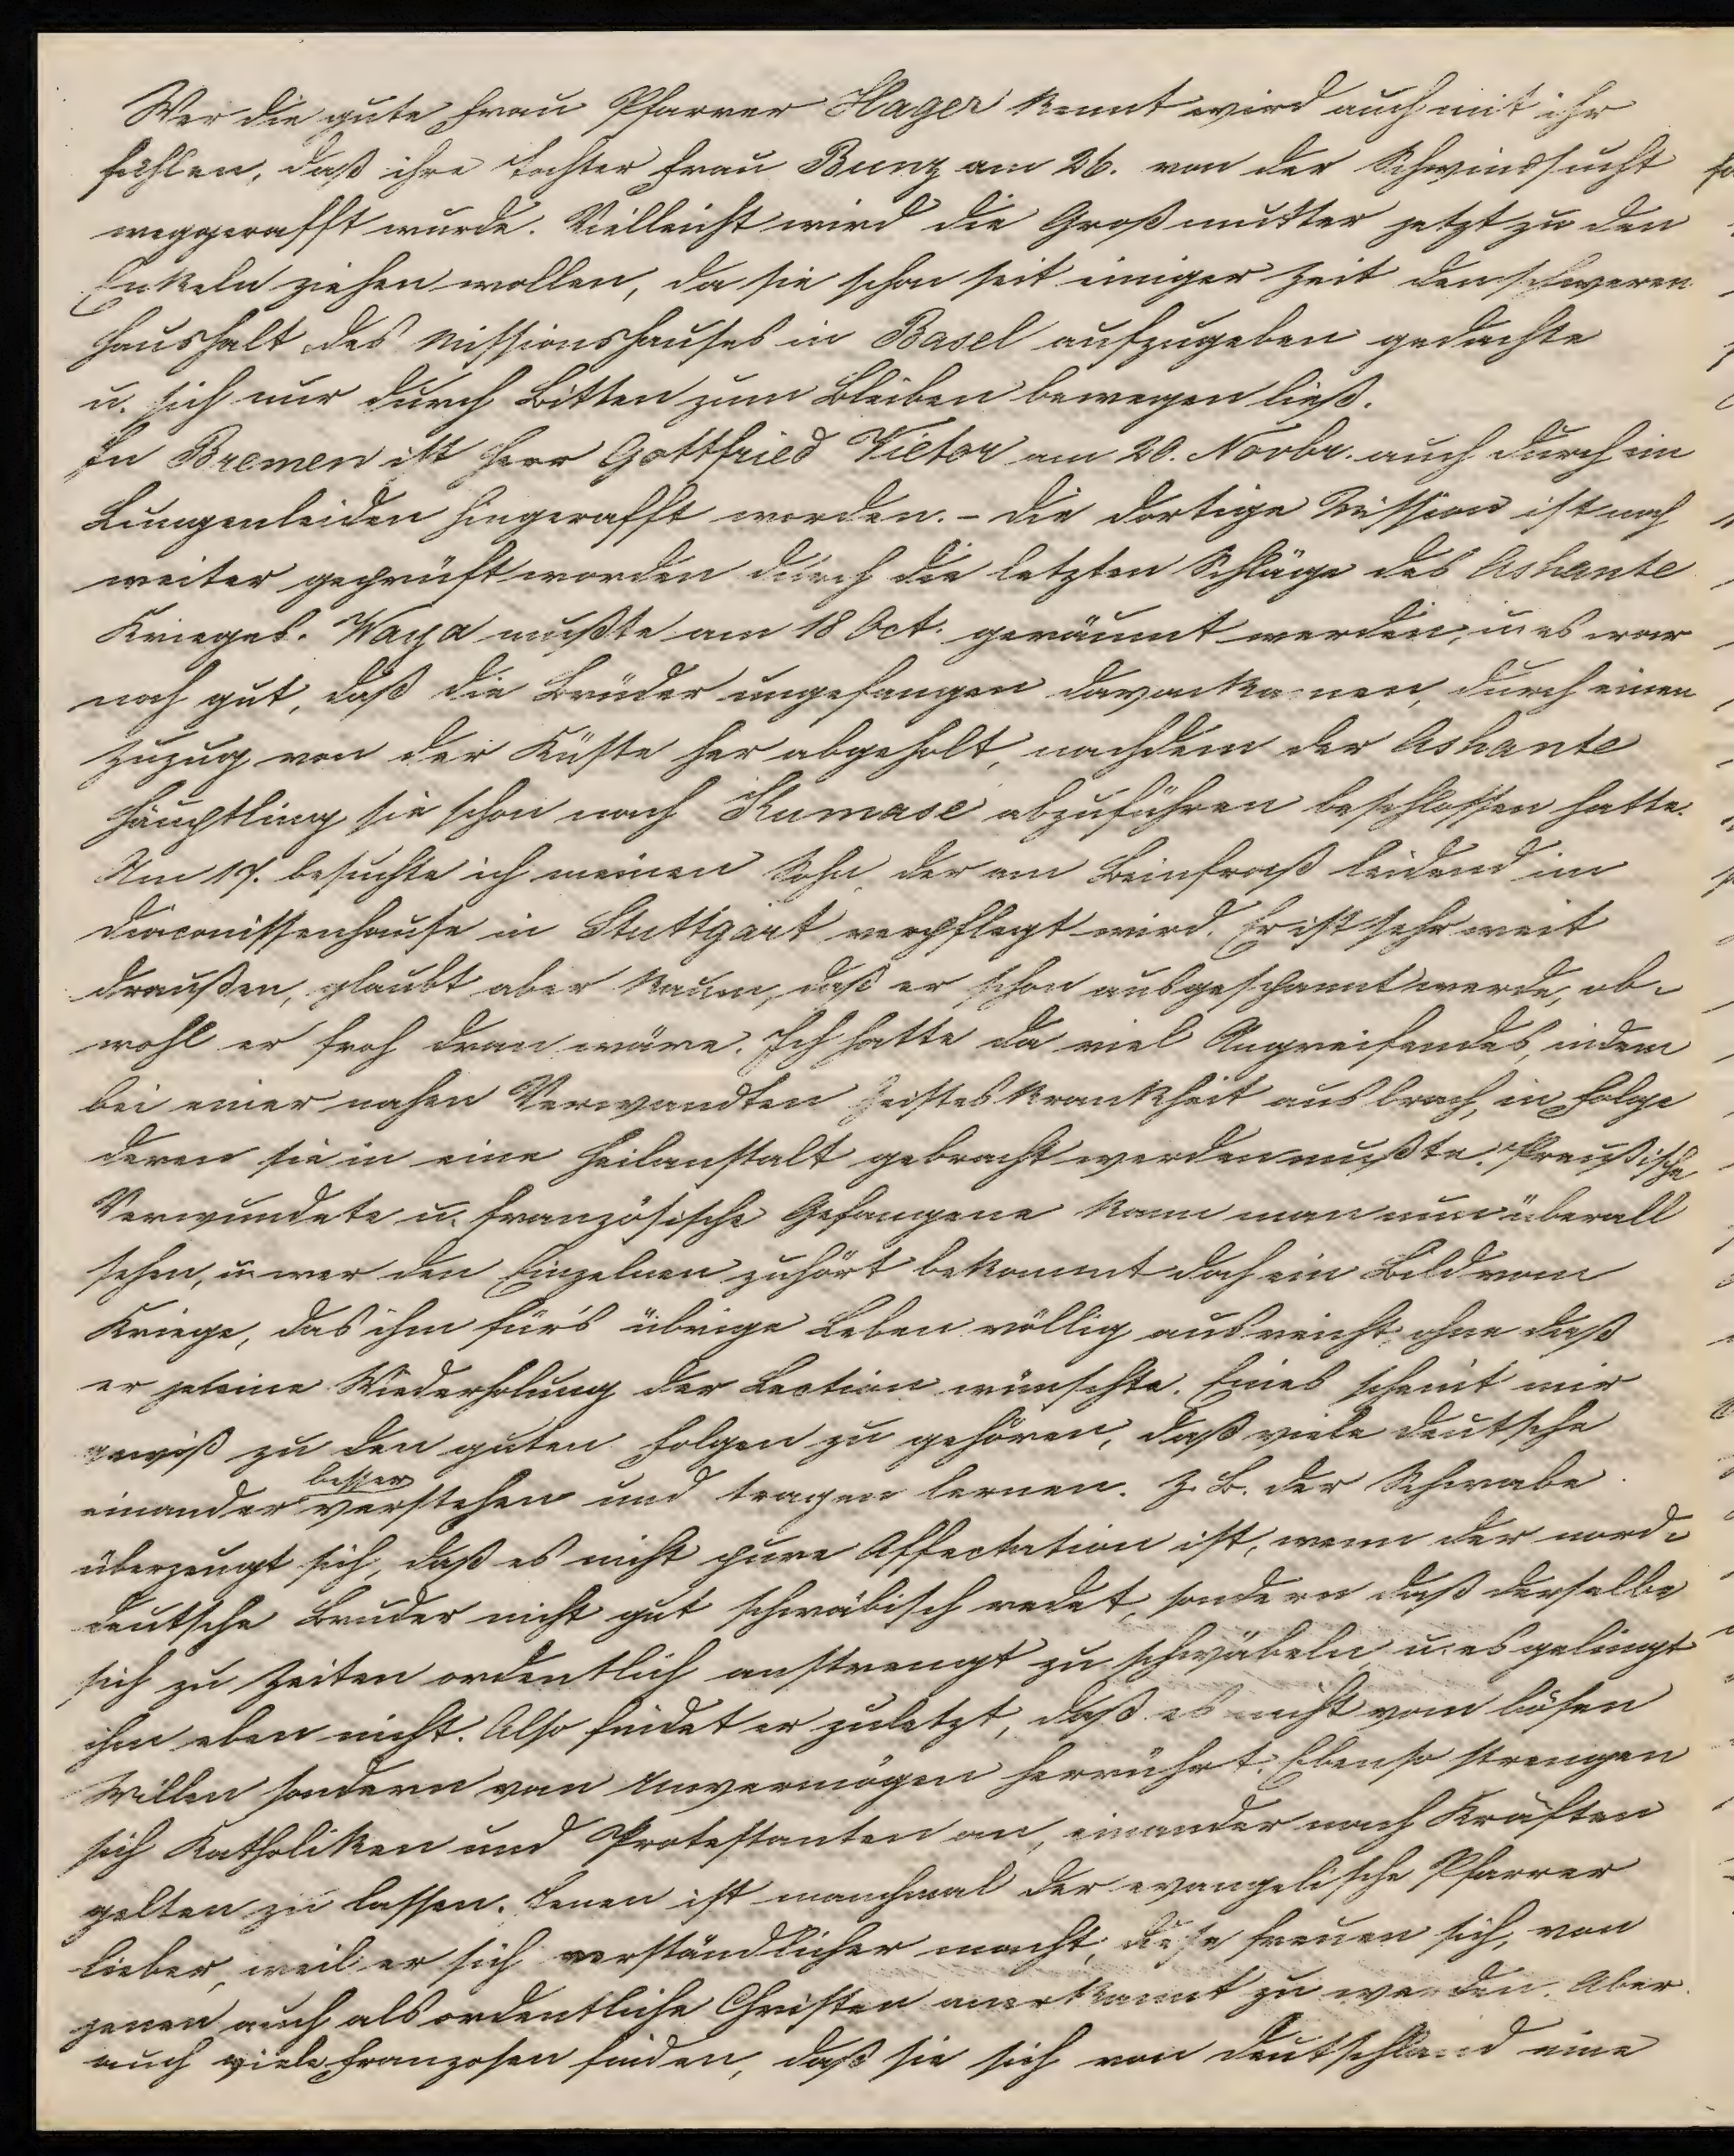 Wer die gute Frau Pfarrer Hager kennt wird auch mit ihr
fühlen, daß ihre Tochter Frau Bunz am 26. von der Schwindsucht
weggerafft wurde. Vielleicht wird die Großmutter jetzt zu den
Enkeln ziehen wollen, da sie schon seit einiger Zeit den schweren
Haushalt des Missionshauses in Basel aufzugeben gedachte
u. sich nur durch Bitten zum Bleiben bewegen ließ.
In Bremen ist Herr Gottfried Vietor am 20. Novbr. auch durch ein
Lungenleiden hingerafft worden. - Die dortige Mission ist noch
weiter geprüft worden durch die letzten Schläge des Ashante
Krieges. Waya mußte am 18 Oct. geräumt werden, u. es war
noch gut, daß die Brüder ungefangen davonkamen, durch einen
Zuzug von der Küste her abgeholt, nachdem der Ashante
Häuptling sie schon nach Kumase abzuführen beschlossen hatte.
Am 17. besuchte ich meinen Sohn der am Beinfraß leidend im
Diaconissenhause in Stuttgart verpflegt wird. Er ist sehr weit
draußen, glaubt aber kaum, daß er schon ausgespannt werde, ob-
wohl er froh dran wäre. Ich hatte da viel Angreifendes, indem
bei einer nahen Verwandten Geisteskrankheit ausbrach, in Folge
deren sie in eine Heilanstalt gebracht werden mußte. Preußische
Verwundete u. französische Gefangene kann man nun überall
sehen, u. wer den Einzelnen zuhört bekommt doch ein Bild vom
Kriege, das ihm für's übrige Leben völlig ausreicht, ohne daß
er je eine Wiederholung der Lection wünschte. Eines scheint mir
gewiß zu den guten Folgen zu gehören, daß viele Deutsche
einander besser verstehen und tragen lernen. Z. B. der Schwabe
überzeugt sich, daß es nicht pure Affectation ist, wenn der nord-
deutsche Bruder nicht gut schwäbisch redet, sondern daß derselbe
sich zu Zeiten ordentlich anstrengt zu schwäbeln u. es gelingt
ihm eben nicht. Also findet er zuletzt, daß es nicht vom bösen
Willen sondern von Unvermögen herrührt. Ebenso strengen
sich Katholiken und Protestanten an, einander nach Kräften
gelten zu lassen. Jenen ist manchmal der evangelische Pfarrer
lieber, weil er sich verständlicher macht, diese freuen sich, von
jenen auch als ordentliche Christen anerkannt zu werden. Aber
auch viele Franzosen finden, daß sie sich von Deutschland eine